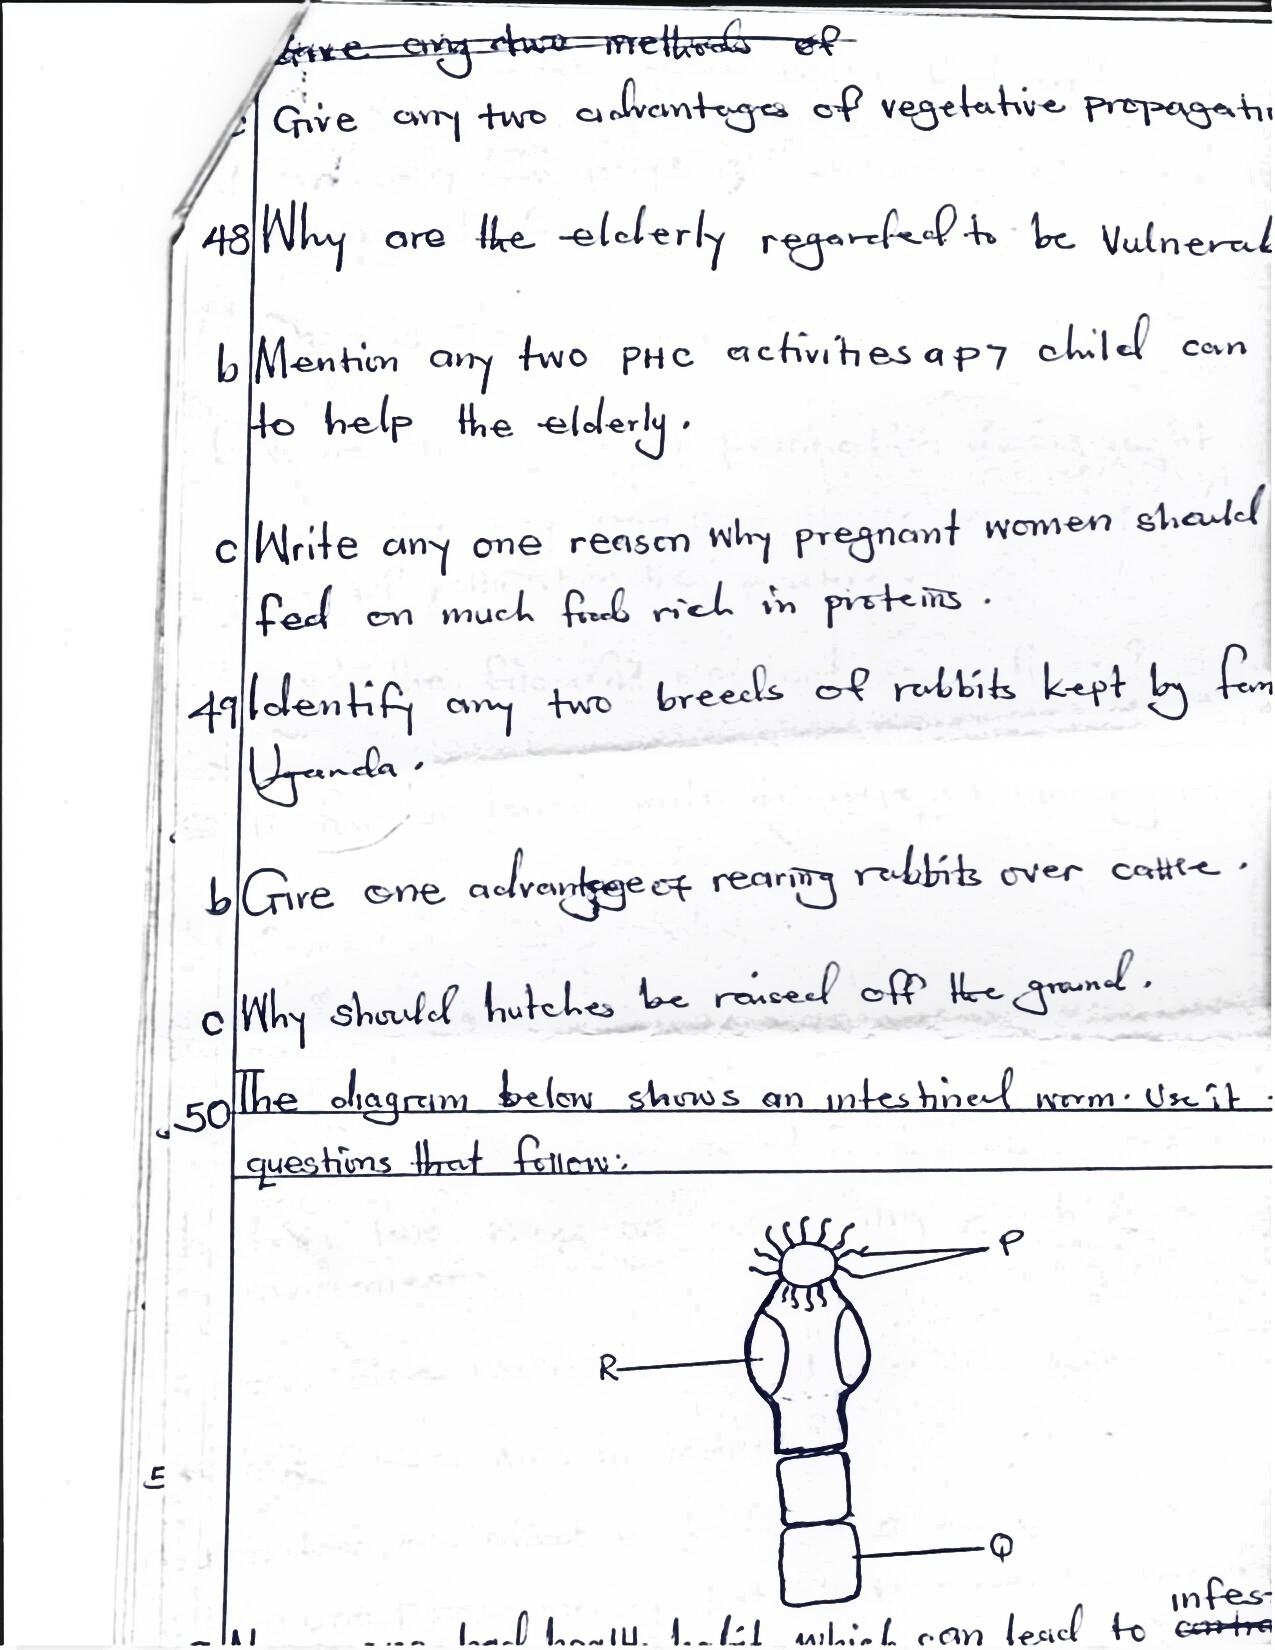 Give any two methods of
Give any two advantages of vegetative propagati
48 Why are the elderly regarded to be Vulneral
b Mention any two PHC activities a p7 child can
to help the elderly.
c Write any one reason why pregnant women should
fed on much foods rich in proteins.
49 Identify any two breeds of rabbits kept by farm
Uganda.
b Give one advantage of rearing rabbits over cattle.
c Why should hutches be raised off the ground.
50 The diagram below shows an intestinal worm. Use it
questions that follow:
P
R
E
Q
infes-
which can lead to